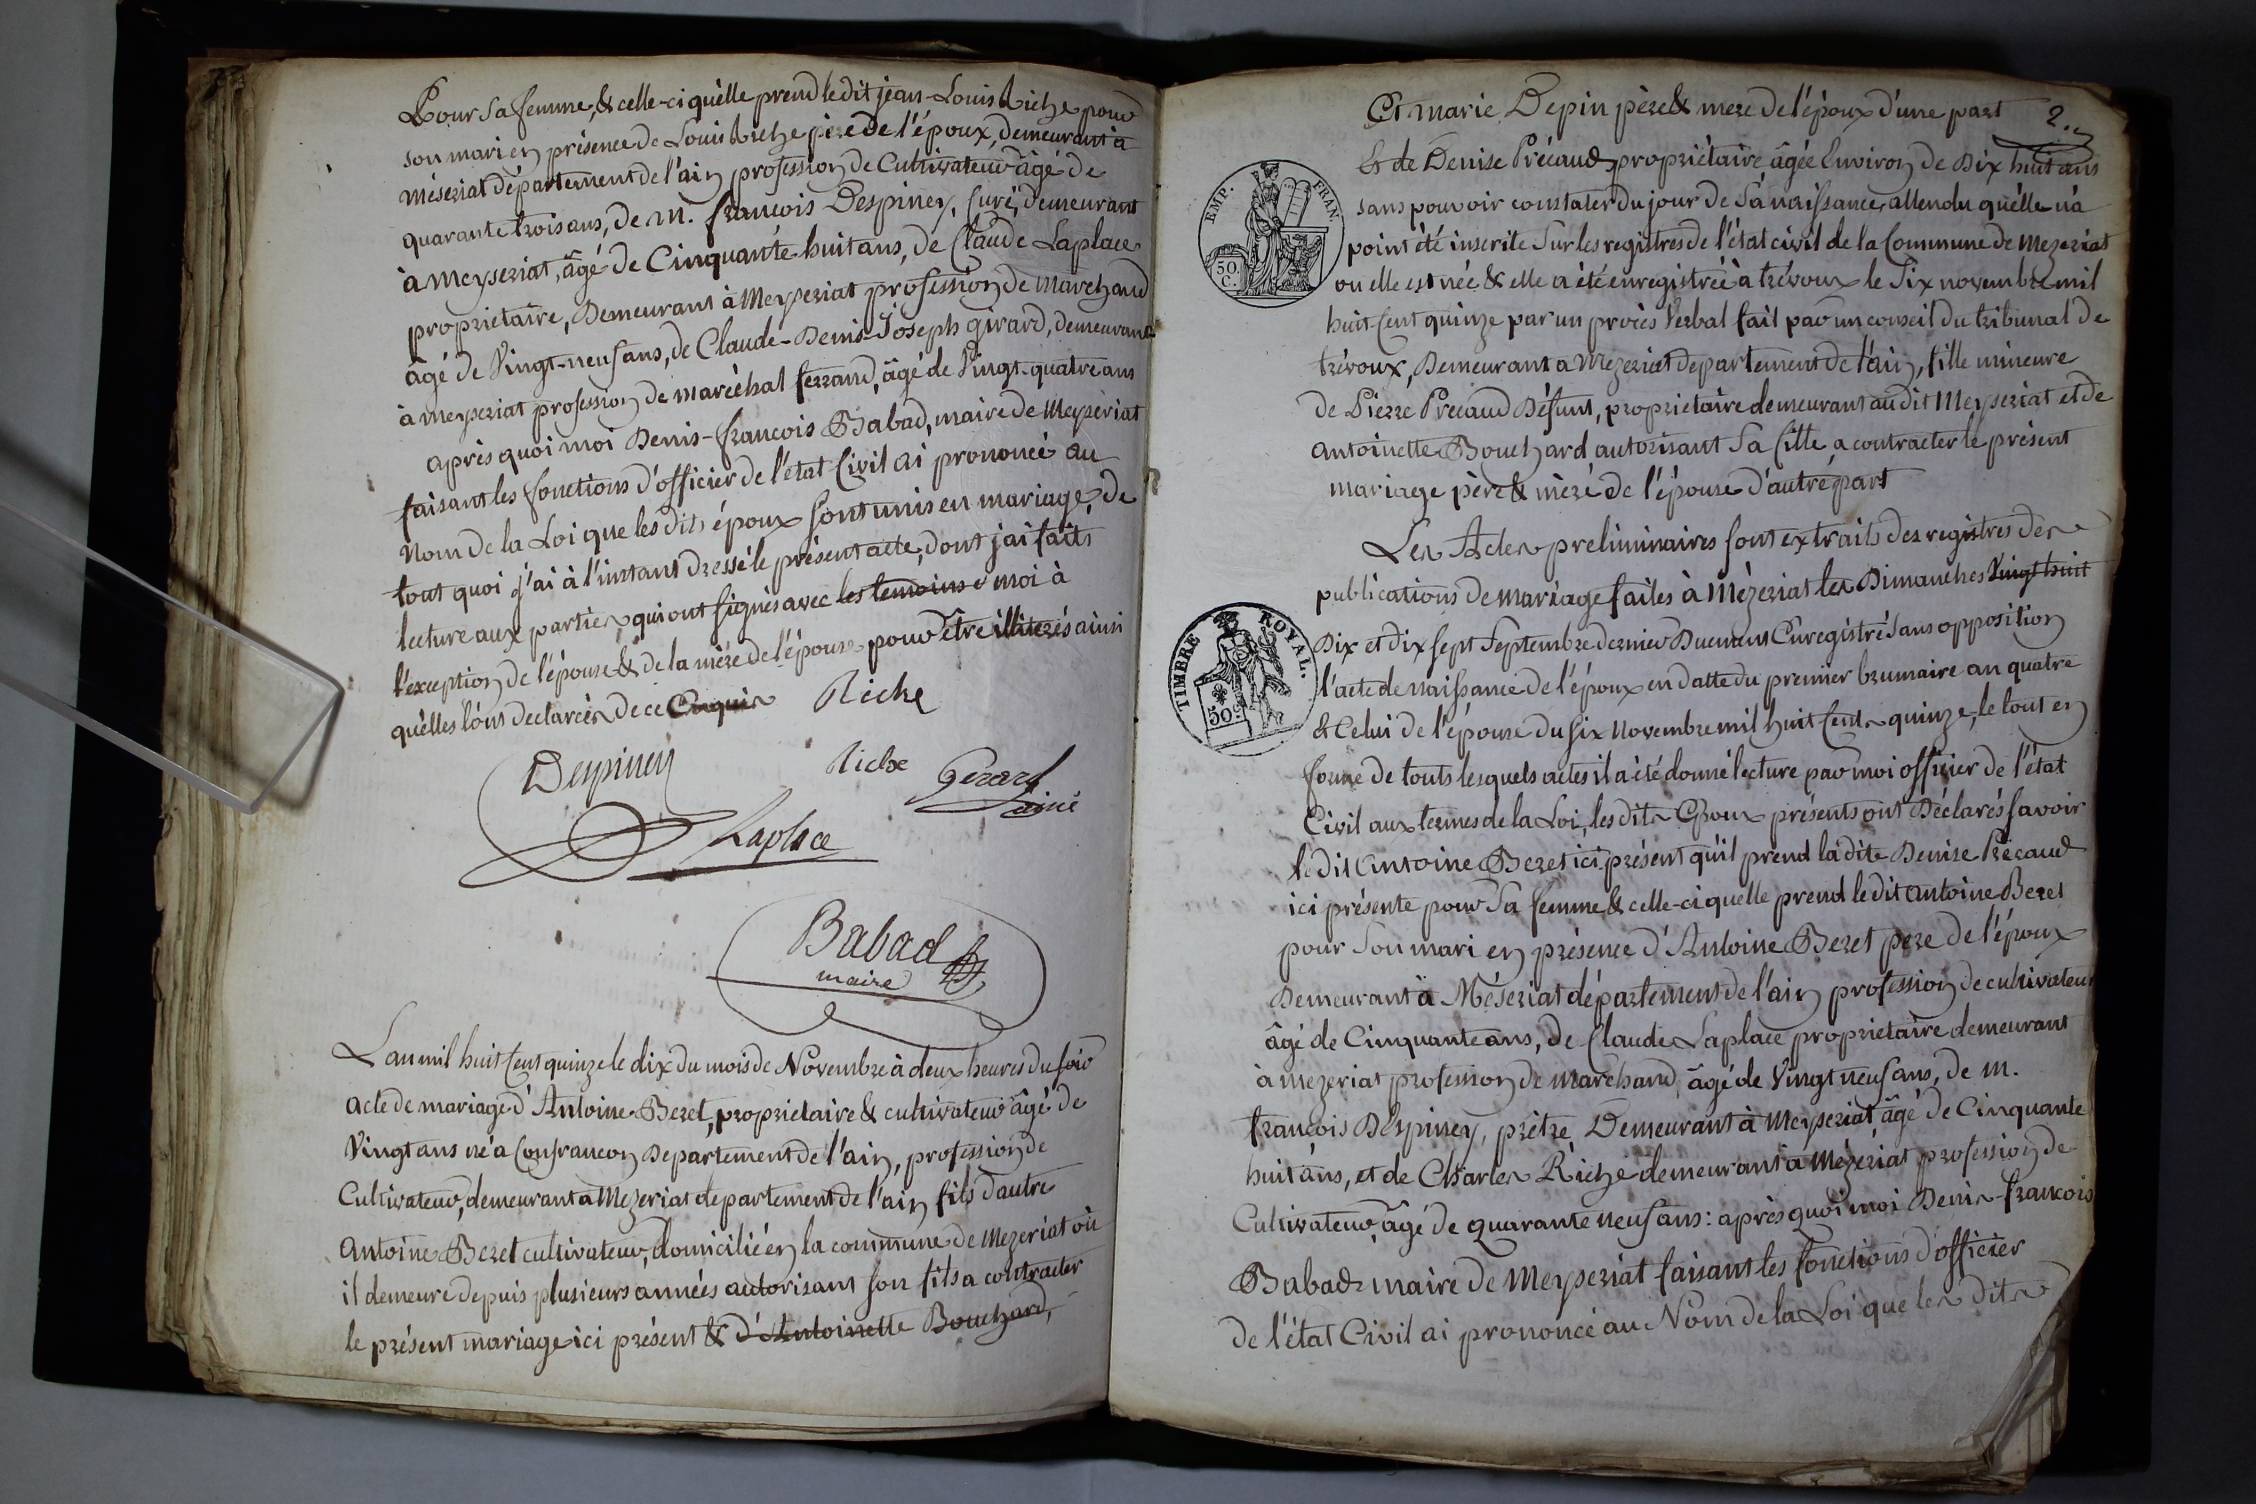 Pour sa femme, & celle-ci qu'elle prend ledit jean-Louis Riche pour
son mari en présence de Louis Riche père de l'époux, demeurant à
Méseriat département de l'ain profession de Cultivateur âgé de
quarante trois ans, de M. françois Despiney, Curé, demeurant
à Meyseriat, âgé de Cinquante huit ans, de Claude Laplace
proprietaire, Demeurant à Meyseriat profession de Marchand
âgé de Vingt-neuf ans, de Claude-Denis-Joseph girard, demeurant
à meyseriat profession de maréchal ferrand, âgé de Vingt-quatre ans
après quoi moi Denis-françois Babad, maire de Meyseriat
faisant les fonctions d'officier de l'état Civil ai prononcé au
Nom de la Loi que les dits époux sont unis en mariage, de
tout quoi j'ai à l'instant dressé le présent acte, dont j'ai faits
lecture aux parties qui ont signés avec les temoins & moi à
l'exception de l'épouse & de la mère de l'épouse pour être illiterés ainsi
qu'elles l'ont declarées de ce Enquis Riche
Despiney Riche Gerard
ainé
Laplace
Babad
maire
L'an mil huit Cent quinze le dix du mois de Novembre à deux heures du soir
acte de mariage d'Antoine Beret, proprietaire & cultivateur âgé de
Vingt ans né à Confrancon Departement de l'ain, profession de
Cultivateur, demeurant à Mezeriat departement de l'ain fils d'autre
antoine Beret cultivateur, domicilié en la commune de Mezeriat où
il demeure depuis plusieurs années autorisant son fils a contracter
le présent mariage ici présent & d'Antoinette Bouchard,
2.
Et marie Depin père & mere de l'époux d'une part
Et de Denise Précaud, propriétaire, âgée Environ de Dix huit ans
sans pouvoir constater du jour de sa naissance, attendu qu'elle n'a
point été inscrite Sur les registres de l'état civil de la Commune de Mezeriat
ou elle est née & elle a été enregistrée à trévoux le Six novembre mil
huit-Cent quinze par un procès Verbal fait par un conseil du tribunal de
trévoux, Demeurant a Mezeriat departement de l'ain, fille mineure
de Pierre Precaud Défunt, proprietaire demeurant au dit Meyseriat et de
antoinette Bouchard autorisant Sa fille a contracter le présent
mariage père & mère de l'épouse d'autre part
Les Actes preliminaires sont extraits des registres des
publications de mariage faites à Mézeriat les Dimanches Vingt huit
Dix et dix sept Septembre dernier Duement Enregistré Sans opposition
l'acte de naissance de l'époux en datte du premier brumaire an quatre
& Celui de l'épouse du six Novembre mil huit Cent quinze, le tout en
forme de touts lesquels actes il a été donné lecture par moi officier de l'état
Civil aux termes de la Loi, les dits Epoux présents ont Déclarés savoir
le dit Antoine Beret ici présent qu'il prend la dite Denise Précaud
ici présente pour Sa femme & celle-ci quelle prend le dit Antoine Beret
pour Son mari en présence d'Antoine Beret pere de l'époux
Demeurant à Méseriat département de l'ain profession de cultivateur
âgé de Cinquante ans, de Claude Laplace proprietaire demeurant
à mezeriat profession de marchand, âgé de Vingt neuf ans, de M.
françois Despiney, prêtre, Demeurant à Meyseriat, âgé de Cinquante
huit ans, et de Charles Riche demeurant à Mézériat profession de
Cultivateur, âgé de quarante neuf ans: après quoi moi Denis-françois
Babad maire de Meyseriat faisant les fonctions d'officier
de l'état Civil ai prononcé au Nom de la Loi que les dits
EMP. FRAN.
50.
C.
TIMBRE ROYAL.
50.c